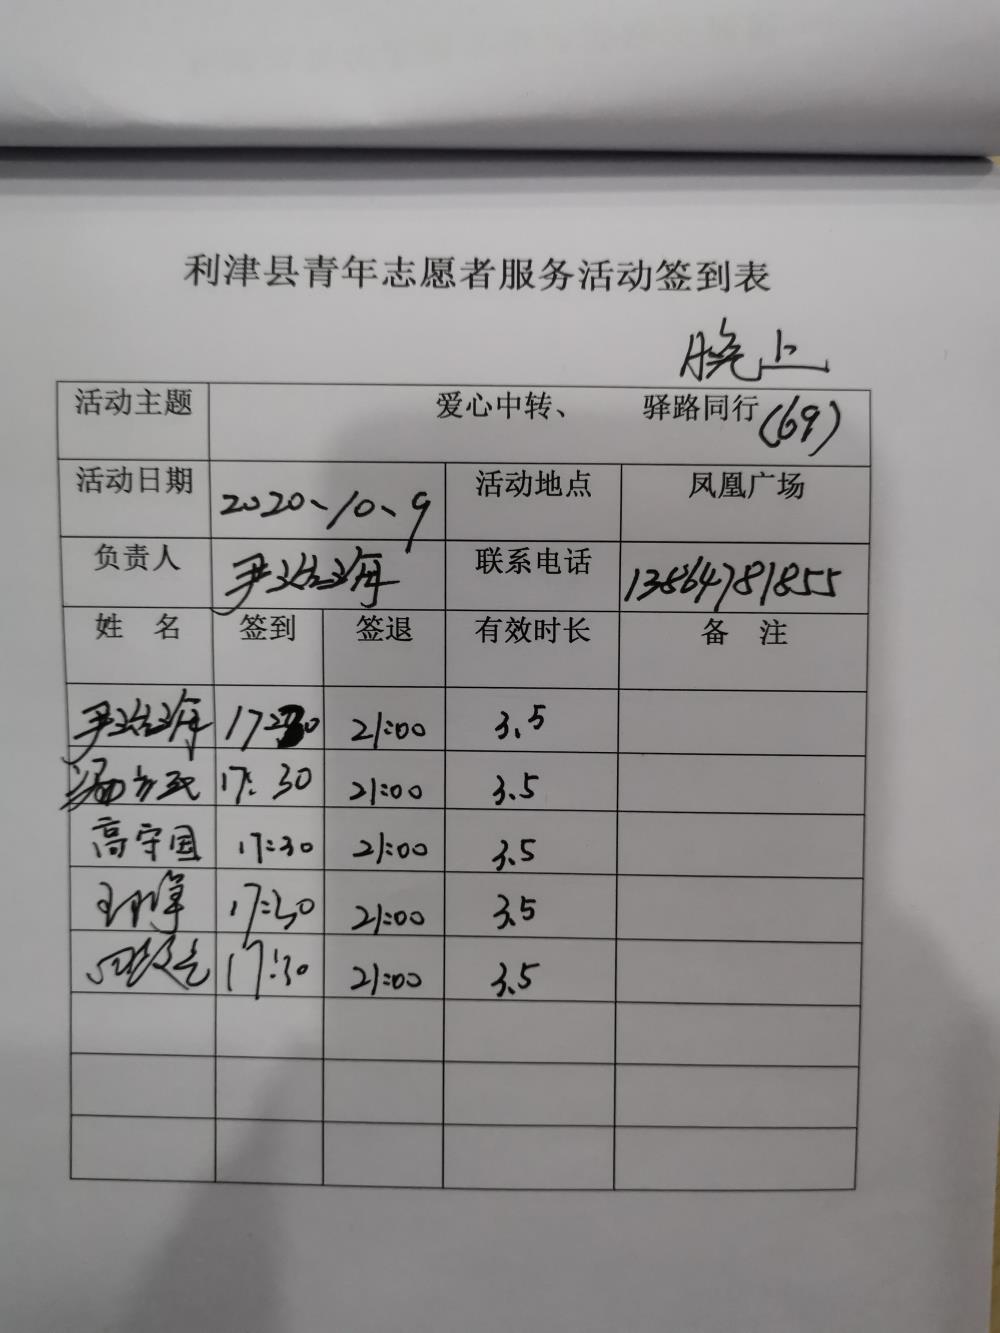 利津县青年志愿者服务活动签到表
晚上
活动主题 爱心中转、 驿路同行(69)
活动日期 2020、10、9 活动地点 凤凰广场
负责人 尹 海 联系电话 13864781855
姓 名 签到 签退 有效时长 备 注
尹 海 17:30 21:00 3.5
17:30 21:00 3.5
高守国 17:30 21:00 3.5
17:30 21:00 3.5
17:30 21:00 3.5